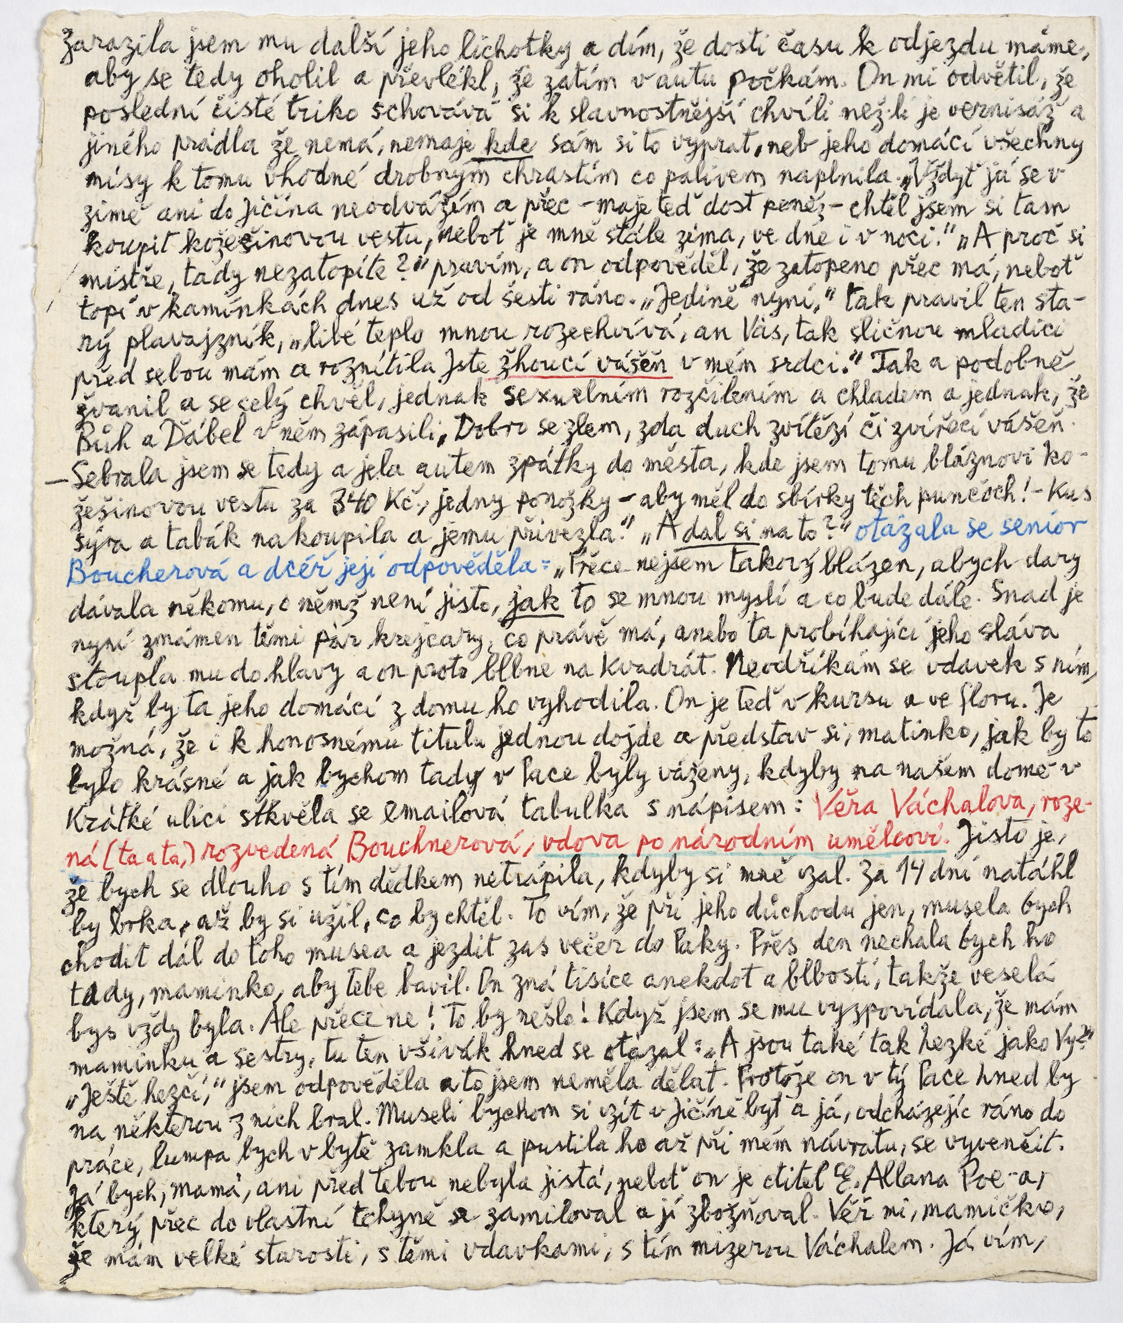 Zarazila jsem mu další jeho lichotky a dím, že dosti času k odjezdu máme,
aby se tedy oholil a převlékl, že zatím v autu počkám. On mi odvětil, že
poslední čisté triko schovává si k slavnostnější chvíli nežli je vernisáž a
jiného prádla že nemá, nemaje kde sám si to vyprat, neb jeho domácí všechny
mísy k tomu vhodné drobným chrastím co palivem naplnila. „Vždyť já se v
zimě ani do Jičína neodvážím a přec - maje teď dost peněz - chtěl jsem si tam
koupit kožešinovou vestu, neboť je mně stále zima, ve dne i v noci." „A proč si
mistře, tady nezatopíte?" pravím, a on odpověděl, že zatopeno přec má, neboť
topí v kamínkách dnes už od šesti ráno. „Jedině nyní," tak pravil ten sta-
rý plavajzník, „libé teplo mnou rozechvívá, an Vás, tak sličnou mladicí
před sebou mám a roznítila Jste žhoucí vášeň v mém srdci." Tak a podobně
žvanil a se celý chvěl, jednak sexuelním rozčilením a chladem a jednak, že
Bůh a Ďábel v něm zápasili, Dobro se zlem, zda duch zvítězí či zvířecí vášeň.
— Sebrala jsem se tedy a jela autem zpátky do města, kde jsem tomu bláznovi ko-
žešinovou vestu za 340 Kč, jedny ponožky - aby měl do sbírky těch punčoch! - kus
sýra a tabák nakoupila a jemu přivezla." „A dal si na to?" otázala se senior
Boucherová a dcéř její odpověděla: „Přece nejsem takový blázen, abych dary
dávala někomu, o němž není jisto, jak to se mnou myslí a co bude dále. Snad je
nyní zmámen těmi pár krejcary, co právě má, anebo ta probíhající jeho sláva
stoupla mu do hlavy a on proto blbne na kvadrát. Neodříkám se vdavek s ním,
když by ta jeho domácí z domu ho vyhodila. On je teď v kursu a ve floru. Je
možná, že i k honosnému titulu jednou dojde a představ si, matinko, jak by to
bylo krásné a jak bychom tady v Pace byly váženy, kdyby na našem domě v
Krátké ulici stkvěla se emailová tabulka s nápisem: Věra Váchalova, roze-
ná (ta a ta,) rozvedená Bouchnerová, vdova po národním umělcovi. Jisto je,
že bych se dlouho s tím dědkem netrápila, kdyby si mně vzal. Za 14 dní natáhl
by brka, až by si užil, co by chtěl. To vím, že při jeho důchodu jen, musela bych
chodit dál do toho musea a jezdit zas večer do Paky. Přes den nechala bych ho
tady, maminko, aby tebe bavil. On zná tisíce anekdot a blbostí, takže veselá
bys vždy byla. Ale přece ne! To by nešlo! Když jsem se mu vyzpovídala, že mám
maminku a sestry, tu ten všivák hned se otázal: „A jsou také tak hezké jako Vy?"
„Ještě hezčí," jsem odpověděla a to jsem neměla dělat. Protože on v tý Pace hned by
na některou z nich bral. Museli bychom si vzít v Jičíně byt a já, odcházejíc ráno do
práce, lumpa bych v bytě zamkla a pustila ho až při mém návratu, se vyvenčit.
Já bych, mamá, ani před tebou nebyla jistá, neboť on je ctitel E. Allana Poe-a,
který přec do vlastní tchyně se zamiloval a ji zbožňoval. Věř mi, mamičko,
že mám velké starosti, s těmi vdavkami, s tím mizerou Váchalem. Já vím,